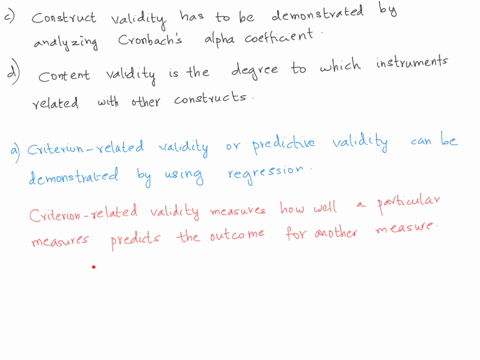 c) Construct validity has to be demonstrated by
analyzing Cronbach's alpha coefficient.
d) Content validity is the degree to which instruments
related with other constructs.
a) Criterion-related validity or predictive validity can be
demonstrated by using regression.
Criterion-related validity measures how well a particular
measures predicts the outcome for another measure.